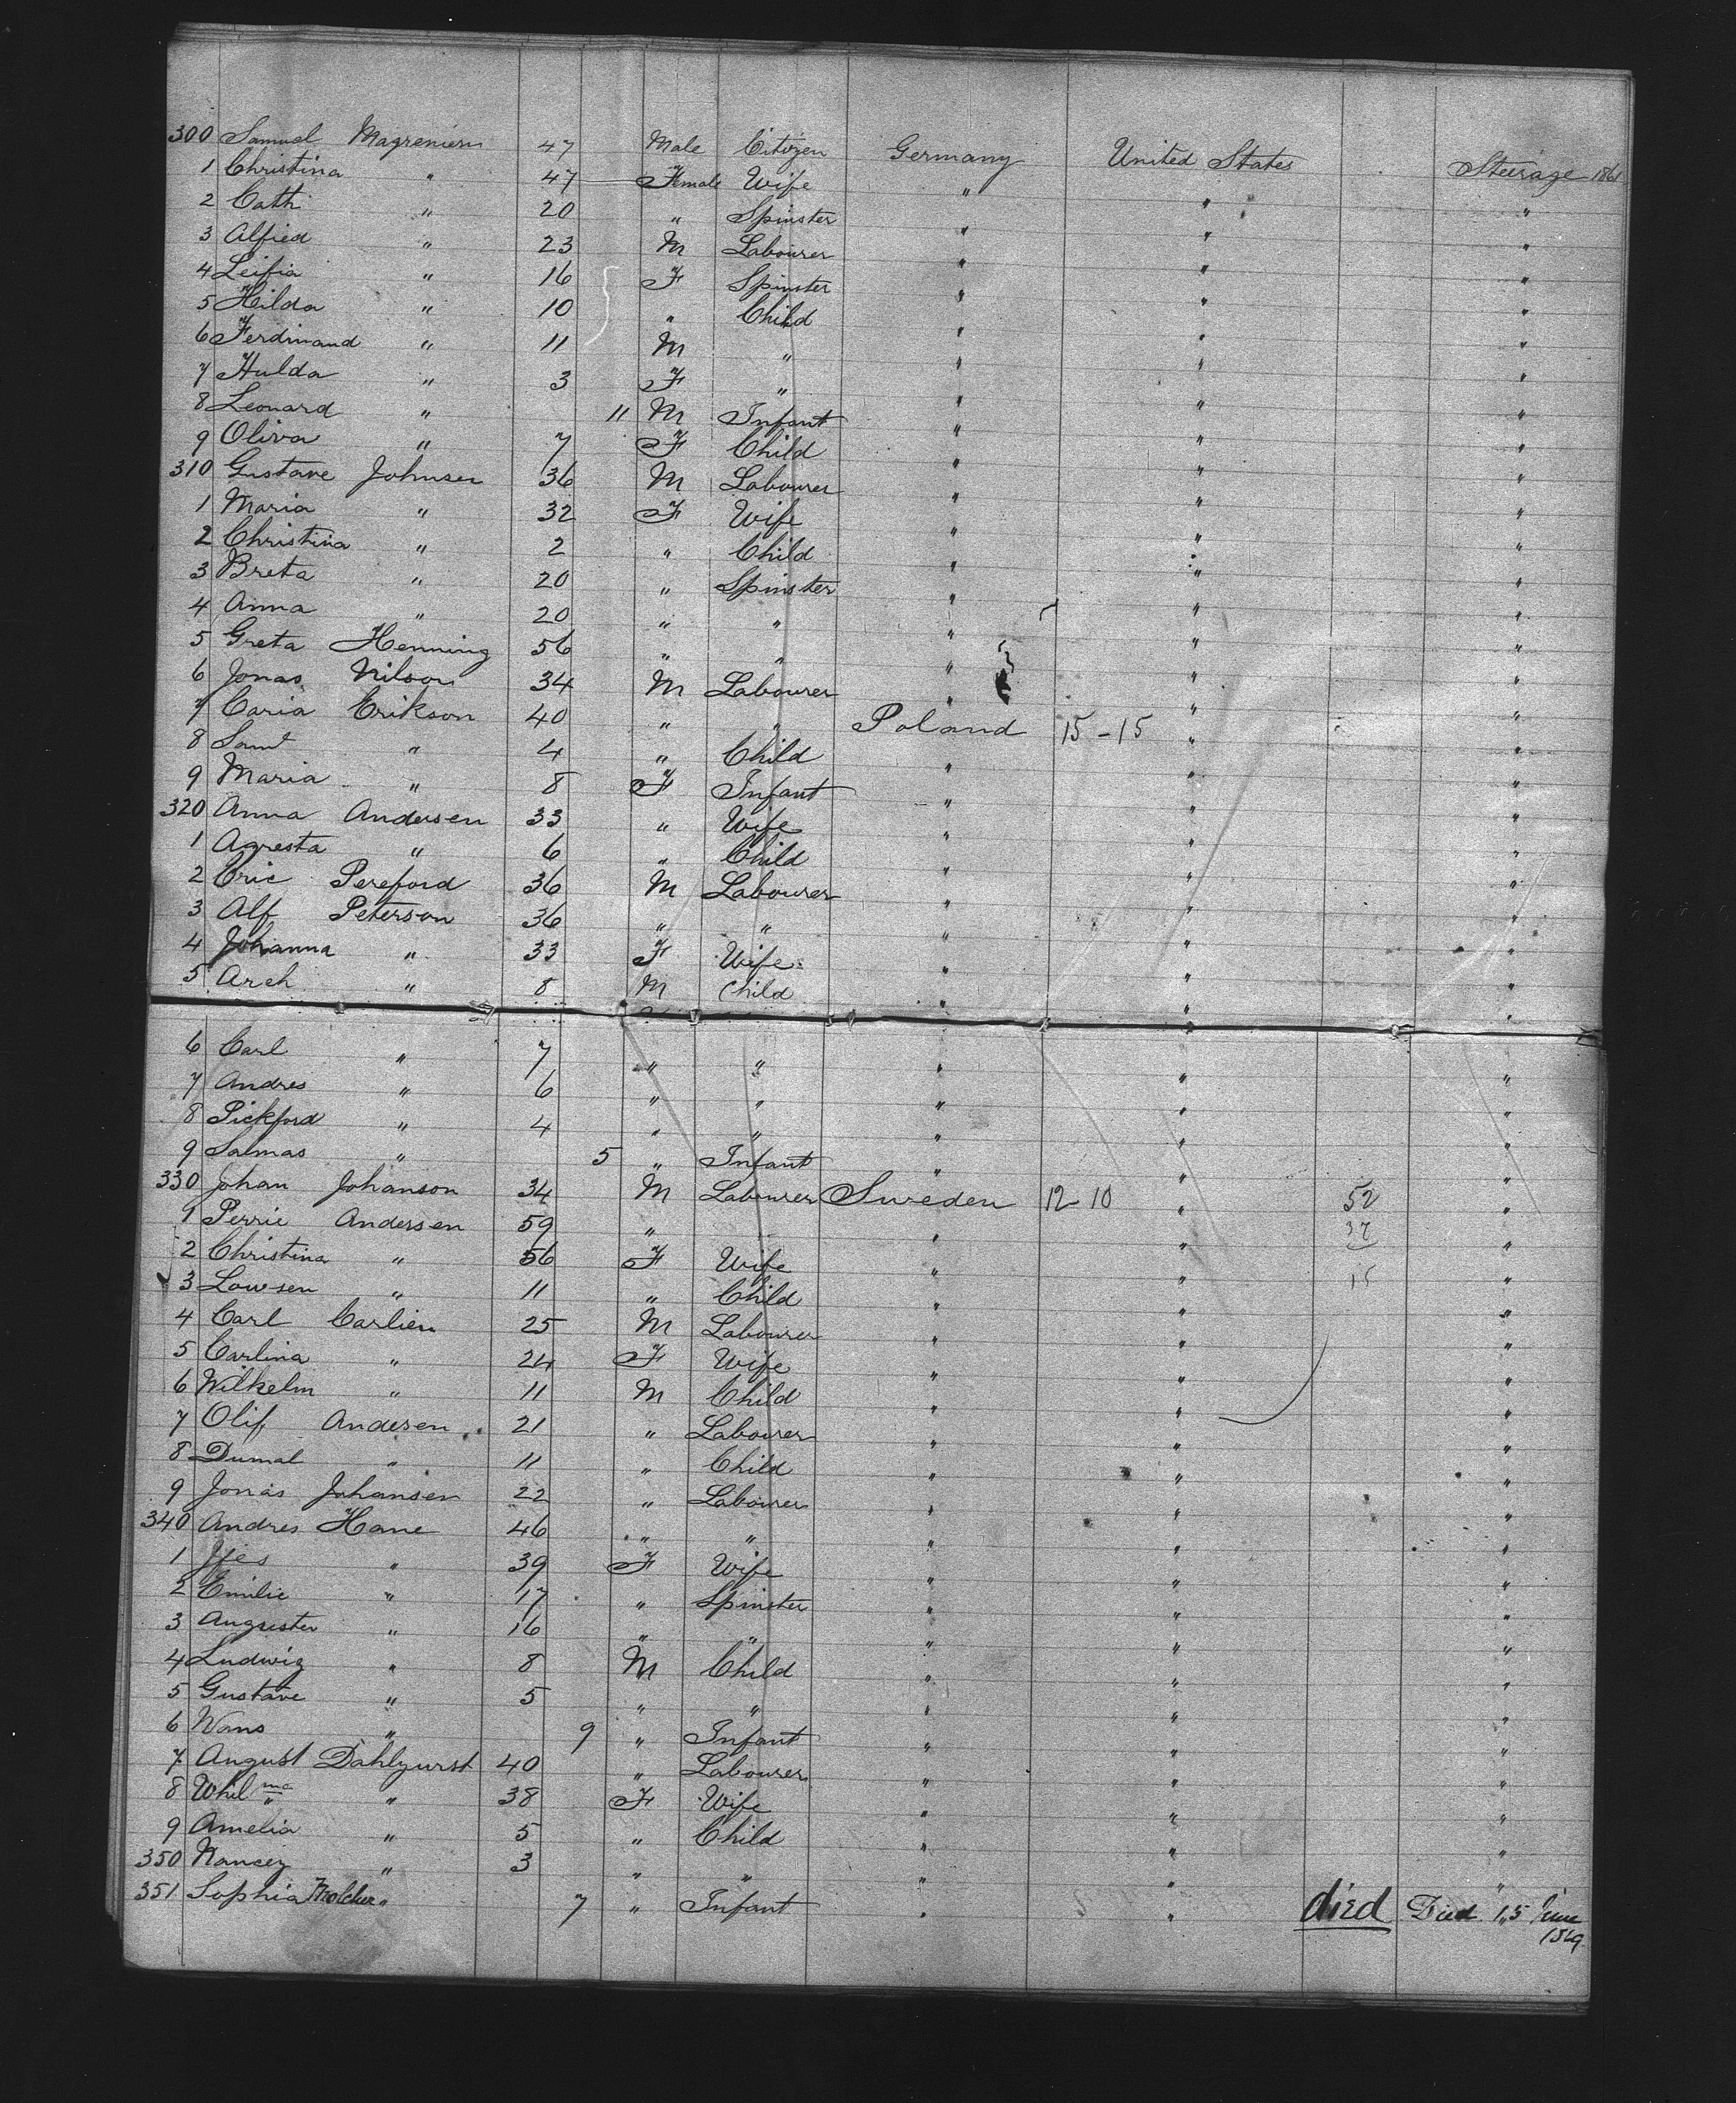 300 Samuel Magrenien 47 Male Citizen Germany United States Steerage 186
1 Christina " 47 Female Wife " " "
2 Cath " 20 " Spinster " " "
3 Alfred " 23 M Labourer " " "
4 Leifia " 16 F Spinster " " "
5 Hilda " 10 " Child " " "
6 Ferdinand " 11 M " " " "
7 Hulda " 3 F " " " "
8 Leonard " 11 M Infant " " "
9 Oliva " 7 F Child " " "
310 Gustave Johnsen 36 M Labourer " " "
1 Maria " 32 F Wife " " "
2 Christina " 2 " Child " " "
3 Breta " 20 " Spinster " " "
4 Anna " 20 " " " " "
5 Greta Henning 56 " " " " "
6 Jonas Nilson 34 M Labourer " " "
7 Caria Erikson 40 " " Poland 15-15 " "
8 Saml " 4 " Child " " "
9 Maria " 8 F Infant " " "
320 Anna Andersen 33 " Wife " " "
1 Agresta " 6 " Child " " "
2 Eric Pereford 36 M Labourer " " "
3 Alf Peterson 36 " " " " "
4 Johanna " 33 F Wife " " "
5 Arch " 8 M Child " " "
6 Carl " 7 " " " " "
7 Andres " 6 " " " " "
8 Pickford " 4 " " " " "
9 Salmas " 5 " Infant " " "
330 Johan Johanson 34 M Labourer Sweden 12-10 " 52 "
1 Perrie Andersen 59 " " " 37 "
2 Christina " 56 F Wife " " 15 "
3 Lowsen " 11 " Child " " "
4 Carl Carlien 25 M Labourer " " "
5 Carlina " 24 F Wife " " "
6 Wilhelm " 11 M Child " " "
7 Olif Andersen 21 " Labourer " " "
8 Dumal " 11 " Child " " "
9 Jonas Johansen 22 " Labourer " " "
340 Andres Hane 46 " " " " "
1 " 39 F Wife " " "
2 Emilie " 17 " Spinster " " "
3 Augsister " 16 " " " " "
4 Ludwig " 8 M Child " " "
5 Gustave " 5 " " " " "
6 Wans " 9 " Infant " " "
7 August Dahlgurst 40 " Labourer " " "
8 Whilma " 38 F Wife " " "
9 Amelia " 5 " Child " " "
350 Nancey " 3 " " " " "
351 Sophia Molcher " 7 " Infant " " died Died 15 June
1869